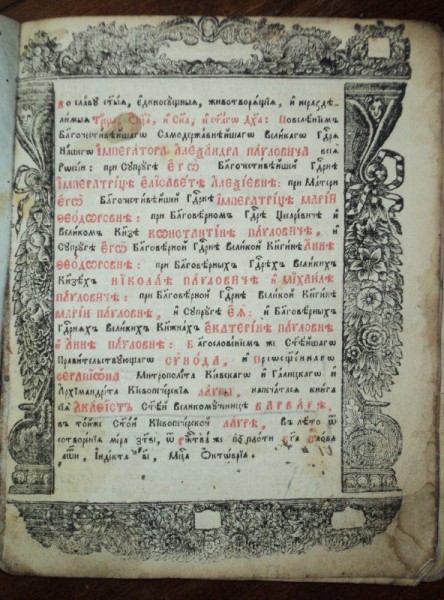 Во славу ст҃ыѧ, єдиносꙋщныѧ, животворѧщїѧ, и нераздѣ-
лимыѧ Трⷪ҇цы Ѻ҆ц҃а, и Сн҃а, и ст҃агѡ Дх҃а: Повелѣнїемъ
Бл҃гочестивѣйшагѡ Самодержавнѣйшагѡ Великагѡ Гдⷭ҇рѧ
Нашегѡ ІМПЕРАТОРА АЛЕѮАНДРА ПАVЛОВИЧА всеѧ
Рѡссїи: при Сꙋпрꙋгѣ ЄГѠ Бл҃гочестивѣйшей Гдⷭ҇рнѣ
ІМПЕРАТРИЦѢ ЄЛИСАВЕТѢ АЛЕѮІЕВНѢ: при Матери
ЄГѠ Бл҃гочестивѣйшей Гдⷭ҇рнѣ ІМПЕРАТРИЦѢ МАРІИ
ѲЕОДѠРОВНѢ: при Бл҃говѣрномъ Гдⷭ҇рѣ Цесаревичѣ и
Великомъ Кн҃зѣ КѠНСТАНТІНѢ ПАVЛОВИЧѢ, и
Сꙋпрꙋгѣ ЄГѠ Бл҃говѣрной Гдⷭ҇рнѣ Великой Кнѧгинѣ АННѢ
ѲЕОДѠРОВНѢ: при Бл҃говѣрныхъ Гдⷭ҇рехъ Великихъ
Кн҃зехъ НІКОЛАѢ ПАVЛОВИЧѢ и МІХАИЛѢ
ПАVЛОВИЧѢ: при Бл҃говѣрной Гдⷭ҇рнѣ Великой Кнѧгинѣ
МАРІИ ПАVЛОВНѢ, и Сꙋпрꙋгѣ ЄѦ: и Бл҃говѣрныхъ
Гдⷭ҇рнѧхъ Великихъ Кнѧжнахъ ЄКАТЕРІНѢ ПАVЛОВНѢ
и АННѢ ПАVЛОВНѢ: Бл҃гословенїемъ же Ст҃ѣйшагѡ
Правительствꙋющагѡ СѴНОДА, и Преѡсщ҃еннагѡ
СЕРАПІѠНА Митрополита Кїевскагѡ и Галицкагѡ и
Архїмандрита Кїевопечерскїѧ ЛАVРЫ, напечатасѧ книга
сїѧ АКАѲІСТЪ Ст҃ѣй Великомꙋченицѣ ВАРВАРѢ,
въ тойже Ст҃ой Кїевопечерской ЛАVРѢ, Въ лѣто ѿ
сотворенїѧ мїра ѿ Рⷤ҇тва же по плоти Бг҃а Слова
Індїкта Мц҃а Октѡврїа.